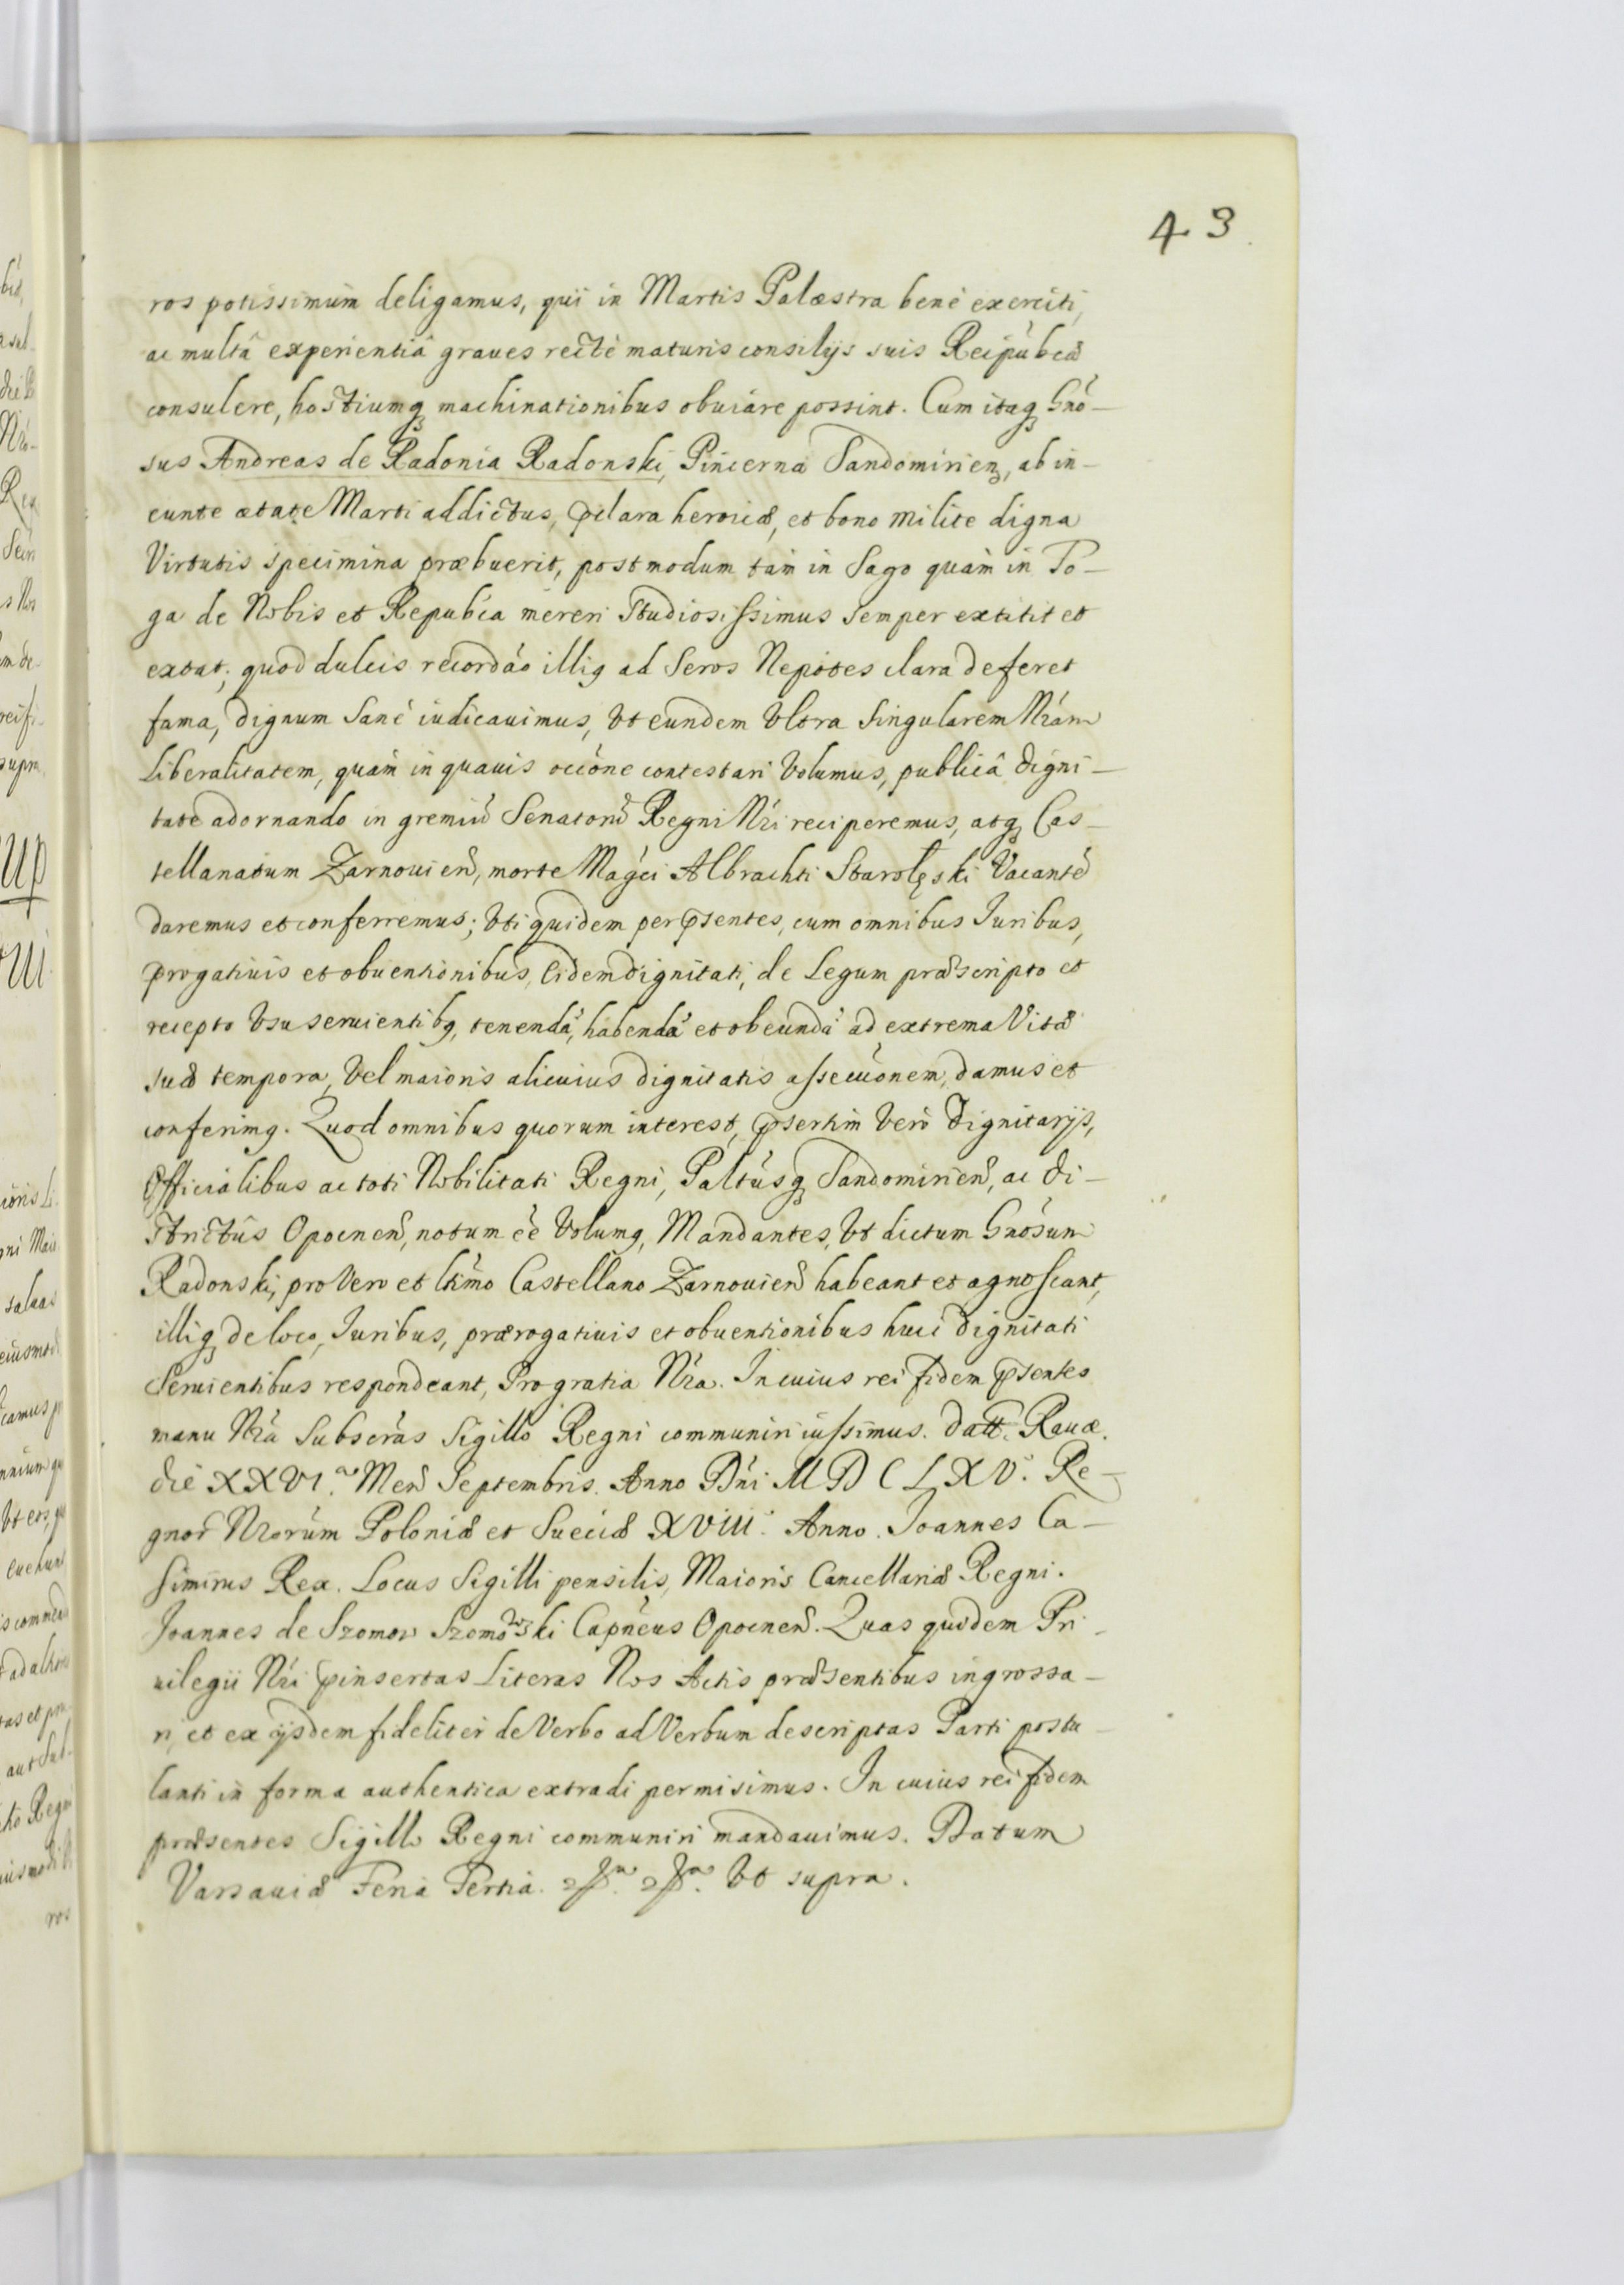 43
ros potissimum deligamus, qui in Martis Palæstra benè exerciti,
ac multâ experientiâ graues rectè maturis consilijs suis Reipúbcæ
consulere, hostiumq; machinationibus obuiare possint. Cum itaq; Gnó-
sus Andreas de Radonia Radonski, Pincerna Sandomirien, ab in-
eunte ætate Marti addictus, pclara heroicâ, et bono milite digna
Virtutis specimina præbuerit, postmodum tàm in Sago quàm in To-
ga de Nobis et Repubca mereri Studiosissimus semper extitit et
extat; quod dulcis recordáo illiq ad Seros Nepotes clara deferet
fama, dignum Sanè iudicauimus, Vt eundem Vltra Singularem Nrám
Liberalitatem, quàm in quauis occóne contestari Volumus, publicâ digni-
tate adornando in gremiũ Senatorũ Regni Nrí reciperemus, atq; Cas-
tellanatum Zarnouien, morte Magci Albrachti Starolęski Vacantẽ
daremus et conferremus; Vti quidem per psentes, cum omnibus Iuribus,
progatiuis et obuentionibus, Eidem dignitati, de Legum præscripto et
recepto Vsu seruientibq, tenendâ, habendâ et obeundâ ad extrema Vitæ
suæ tempora, Vel maioris alicuius dignitatis assecuonem, damus et
conferimq. Quod omnibus quorum interest, psertim Verò dignitarijs,
Officialibus ac toti Nobilitati Regni, Paltusq; Sandomirien, ac di-
strictûs Opocnen, notum éé Volumq, Mandantes, Vt dictum Gnósum
Radonski, pro Vero et ltimo Castellano Zarnouien habeant et agnoscant,
illiq; de loco, Iuribus, prærogatiuis et obuentionibus huic dignitati
Seruientibus respondeant, Pro gratia Nra. In cuius rei fidem psentes
manu Nrâ Subscras Sigillo Regni communiri iussimus. Datt. Rauæ.
die XXVI.a Men Septembris. Anno Dńi MDCLXV. Re-
gnor Nrorum Poloniæ et Sueciæ XVIII. Anno. Joannes Ca-
simirus Rex. Locus Sigilli pensilis, Maioris Cancellariæ Regni.
Joannes de Szomow Szomowski Capneus Opocnen. Quas quidem Pri-
uilegii Nrí pinsertas Literas Nos Actis præsentibus ingrossa-
ri, et ex ijsdem fideliter de Verbo ad Verbum descriptas Parti postu-
lanti in forma authentica extradi permisimus. In cuius rei fidem
præsentes Sigillo Regni communiri mandauimus. Datum
Varsauiæ Feria Tertia. Vt supra.